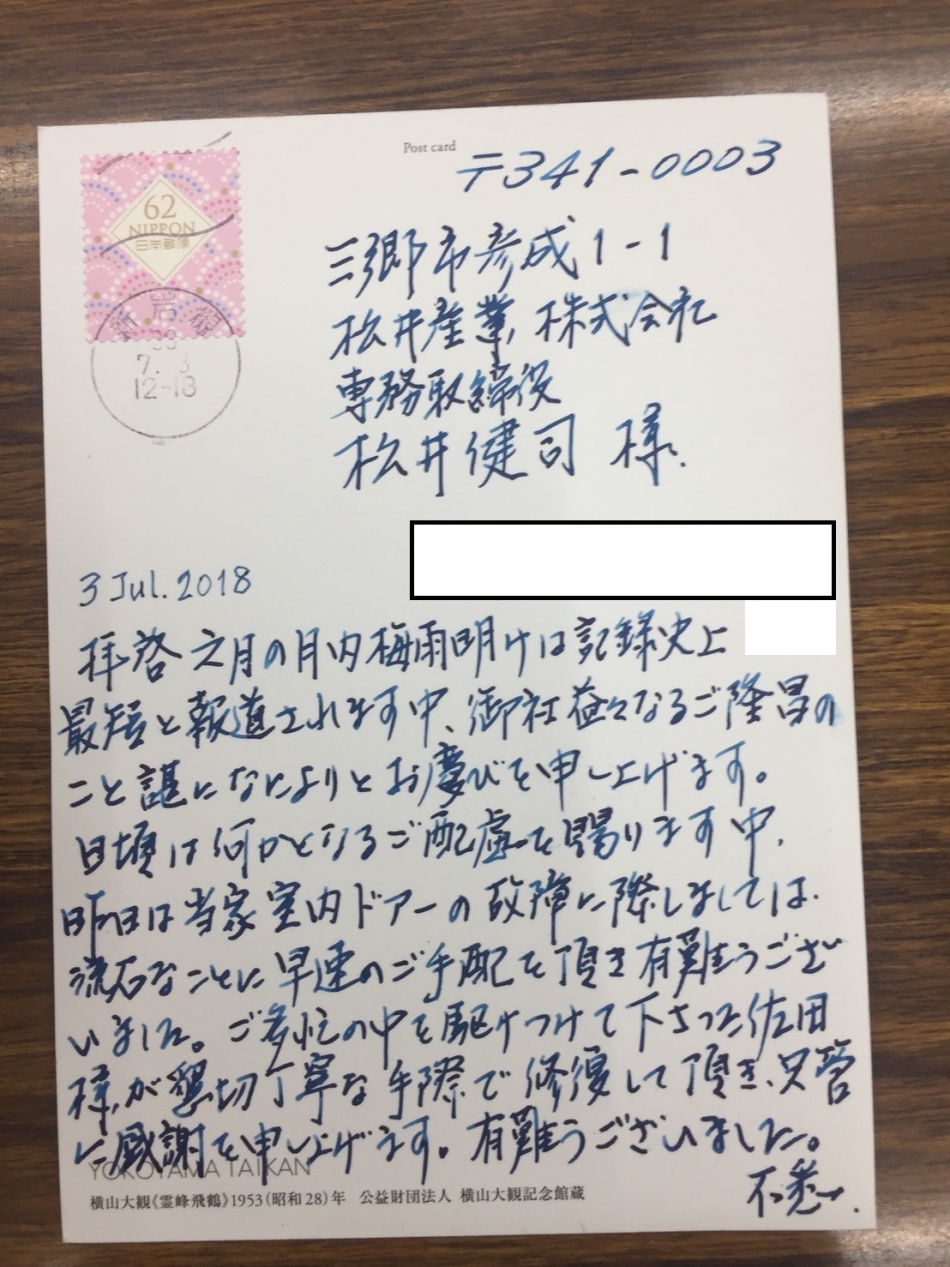 Post card
〒341-0003
62
NIPPON
日本郵便
三郷市彦成1-1
松井産業株式会社
専務取締役
松井健司 様.
新岩槻
30
7. 3
12-18
3 Jul. 2018
拝啓 六月の月内梅雨明けは記録史上
最短と報道されます中、御社益々なるご隆昌の
こと誠になによりとお慶びを申し上げます。
日頃は何かとなるご配慮を賜ります中、
昨日は当家室内ドアーの故障に際しましては、
流石なことに早速のご手配を頂き有難うござ
いました。ご多忙の中を駆けつけて下さった佐田
様が懇切丁寧な手際で修復して頂き、只管
に感謝を申し上げます。有難うございました。
YOKOYAMA TAIKAN
不悉.
横山大観《霊峰飛鶴》1953(昭和28)年 公益財団法人 横山大観記念館蔵